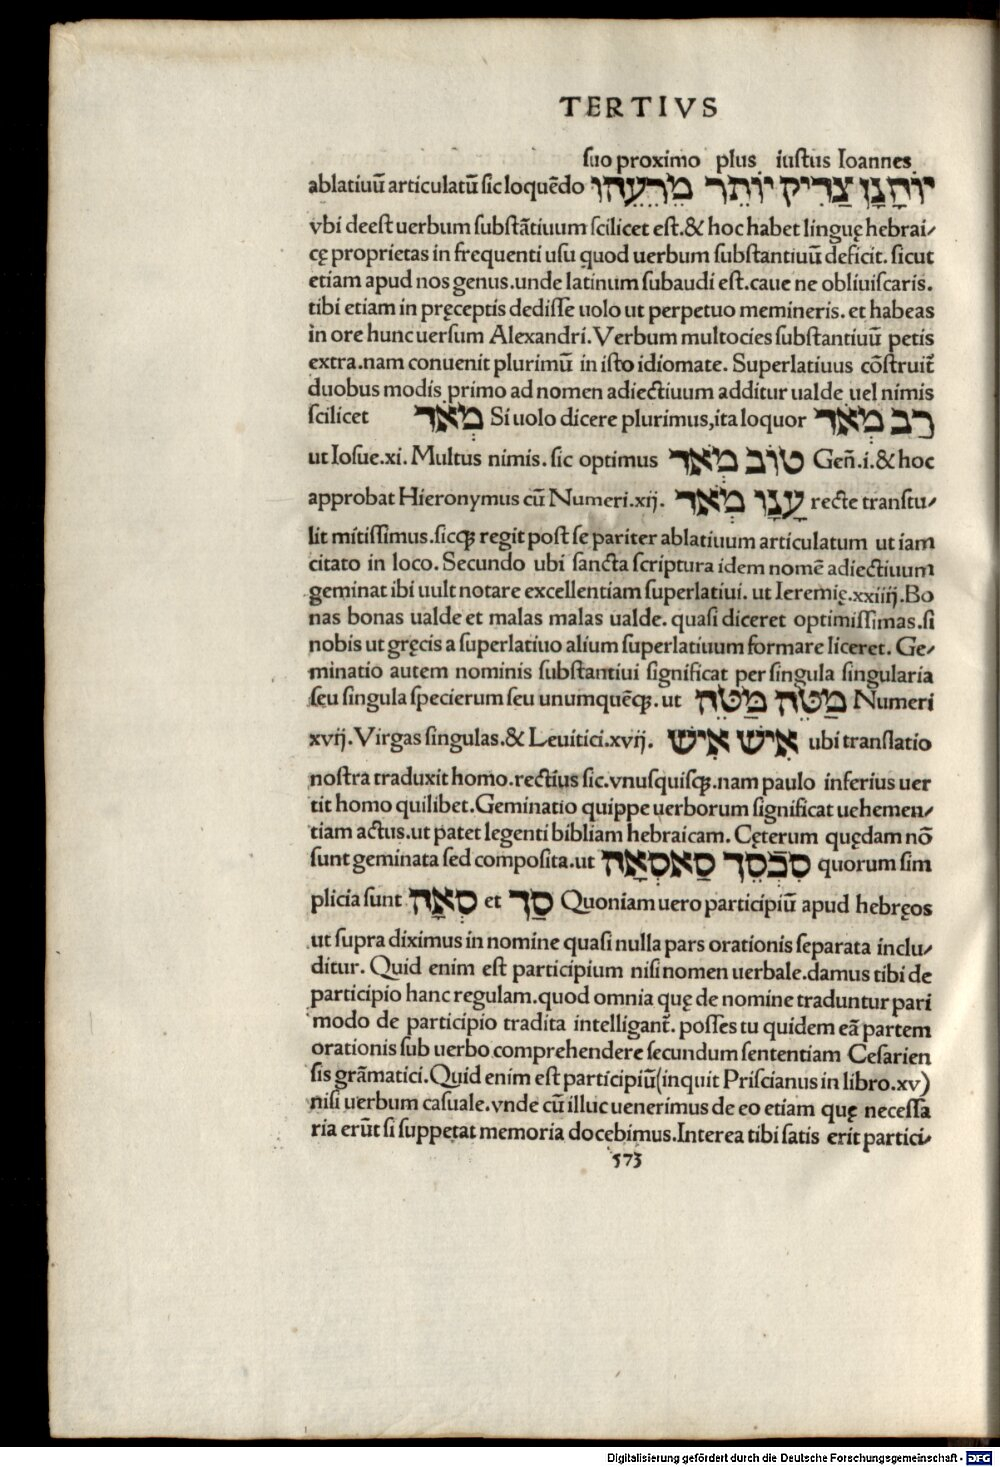 TERTIVS
suo proximo plus iustus Ioannes
ablatiuū articulatū sic loquēdo יוֹחָנָן צַדִּיק יוֹתֵר מֵרֵעֵהוּ
vbi deest uerbum substātiuum scilicet est.& hoc habet linguę hebrai⸗
cę proprietas in frequenti usu quod uerbum substantiuū deficit. sicut
etiam apud nos genus.unde latinum subaudi est.caue ne obliuiscaris.
tibi etiam in pręceptis dedisse uolo ut perpetuo memineris. et habeas
in ore hunc uersum Alexandri. Verbum multocies substantiuū petis
extra.nam conuenit plurimū in isto idiomate. Superlatiuus cōstruit̃
duobus modis primo ad nomen adiectiuum additur ualde uel nimis
scilicet מְאֹד Si uolo dicere plurimus,ita loquor רַב מְאֹד
ut Iosue.xi. Multus nimis. sic optimus טוֹב מְאֹד Geñ.i.& hoc
approbat Hieronymus cū Numeri.xij. עָנָו מְאֹד recte transtu⸗
lit mitissimus.sicꝗ regit post se pariter ablatiuum articulatum ut iam
citato in loco. Secundo ubi sancta scriptura idem nomē adiectiuum
geminat ibi uult notare excellentiam superlatiui. ut Ieremię.xxiiij.Bo
nas bonas ualde et malas malas ualde. quasi diceret optimissimas.si
nobis ut gręcis a superlatiuo alium superlatiuum formare liceret. Ge⸗
minatio autem nominis substantiui significat per singula singularia
seu singula specierum seu unumquēꝗ. ut מַטֵּה מַטֵּה Numeri
xvij. Virgas singulas.& Leuitici.xvij. אִישׁ אִישׁ ubi translatio
nostra traduxit homo.rectius sic.vnusquisꝗ.nam paulo inferius uer
tit homo quilibet.Geminatio quippe uerborum significat uehemen⸗
tiam actus.ut patet legenti bibliam hebraicam. Cęterum quędam nō
sunt geminata sed composita.ut סִכְסֵךְ סַאסְאָה quorum sim
plicia sunt סְאָה et סַךְ Quoniam uero participiū apud hebręos
ut supra diximus in nomine quasi nulla pars orationis separata inclu⸗
ditur. Quid enim est participium nisi nomen uerbale.damus tibi de
participio hanc regulam.quod omnia quę de nomine traduntur pari
modo de participio tradita intelligant̃. posses tu quidem eā partem
orationis sub uerbo comprehendere secundum sententiam Cesarien
sis grāmatici.Quid enim est participiū(inquit Priscianus in libro.xv)
nisi uerbum casuale.vnde cū illuc uenerimus de eo etiam quę necessa
ria erūt si suppetat memoria docebimus.Interea tibi satis erit partici⸗
573
Digitalisierung gefördert durch die Deutsche Forschungsgemeinschaft - DFG